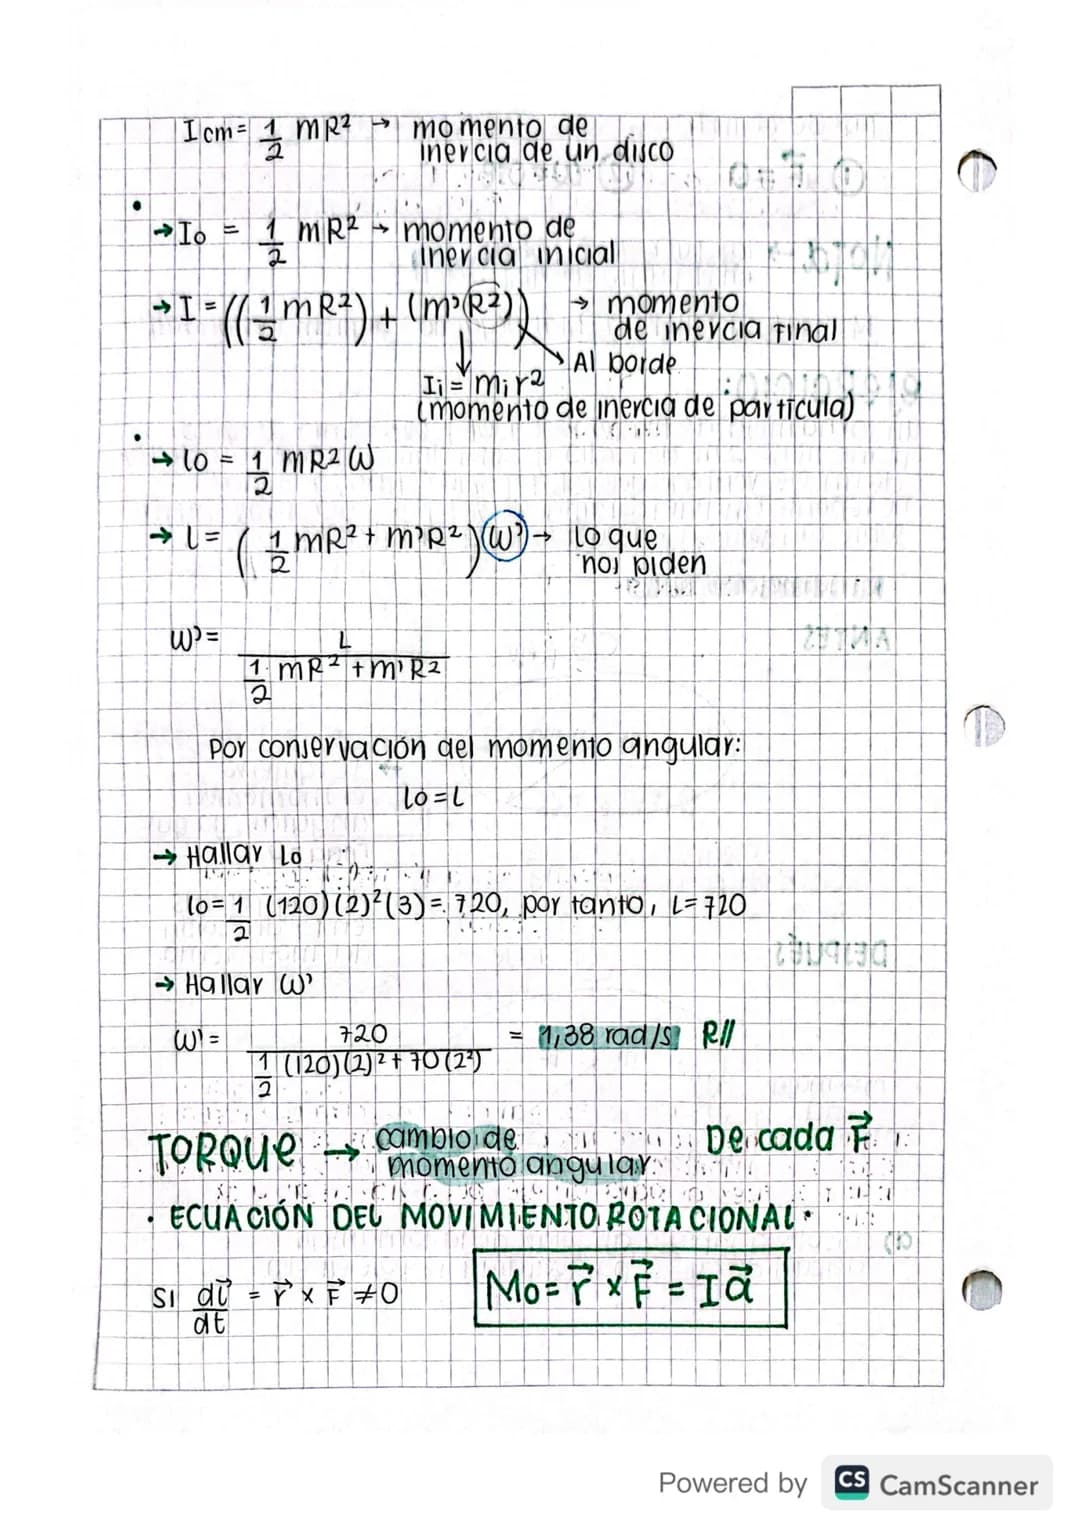 Icm = 1/2 mR² → momento de
inercia de un disco
• → Io = 1/2 mR² → momento de
inercia inicial
→ I = ((1/2 mR²) + (m'(R²)) → momento
de inercia final
Al borde
Ii = mir²
(momento de inercia de partícula)
• → lo = 1/2 mR² W
→ L = (1/2 mR² + m'R²) W' → lo que
nos piden
W' = L / (1/2 mR² + m'R²)
Por conservación del momento angular:
Lo = L
→ Hallar Lo
lo = 1/2 (120)(2)²(3) = 720, por tanto, L = 720
→ Hallar W'
W' = 720 / (1/2 (120)(2)² + 70(2²)) = 1,38 rad/s R//
TORQUE → cambio de
momento angular De cada F⃗
• ECUACIÓN DEL MOVIMIENTO ROTACIONAL •
SI dL⃗/dt = r⃗ x F⃗ ≠ 0
Mo = r⃗ x F⃗ = I a⃗
Powered by CS CamScanner